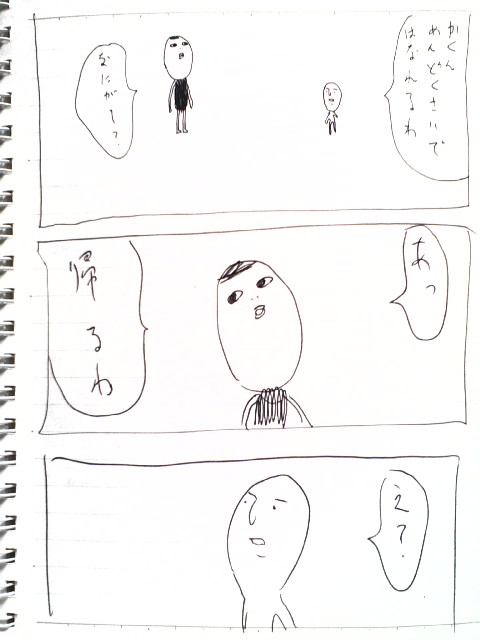 かくん
めんどくさいで
はなれるわ
なにがて?
あっ
帰るわ
え?